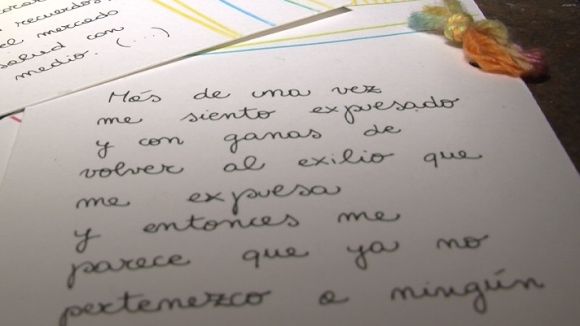 recuerdos.
el mercado
salud con
medio. (...)
Más de una vez
me siento expulsado
y con ganas de
volver al exilio que
me expulsa
y entonces me
parece que ya no
pertenezco a ningún